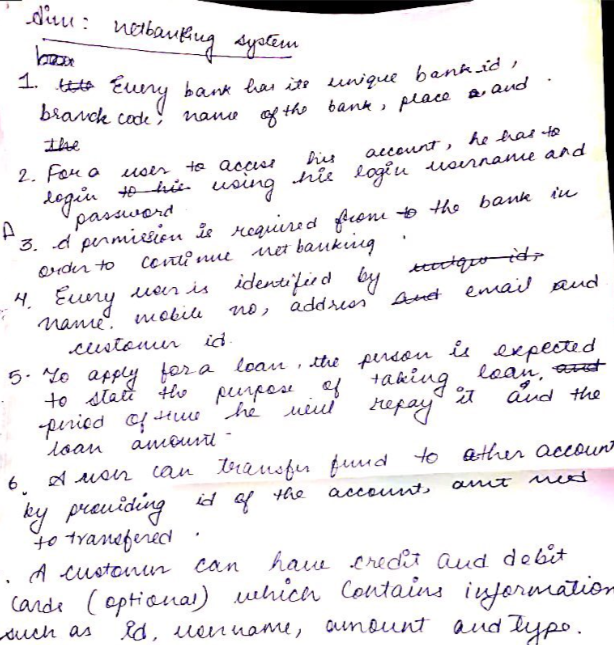 Aim: netbanking system
1. Every bank has its unique bank_id,
branch code, name of the bank, place and.
the
2. For a user to access his account, he has to
login to his using his login username and
password
A
3. A permission is required from to the bank in
order to continue netbanking.
4. Every user is identified by unique id,
name. mobile no, address and email and
customer id.
5. To apply for a loan, the person is expected
to state the purpose of taking loan, and
period of time he will repay it and the
loan amount.
6. A user can transfer fund to other account
by providing id of the account, amt need
to transfered.
. A customer can have credit and debit
cards (optional) which contains information
such as id, username, amount and type.